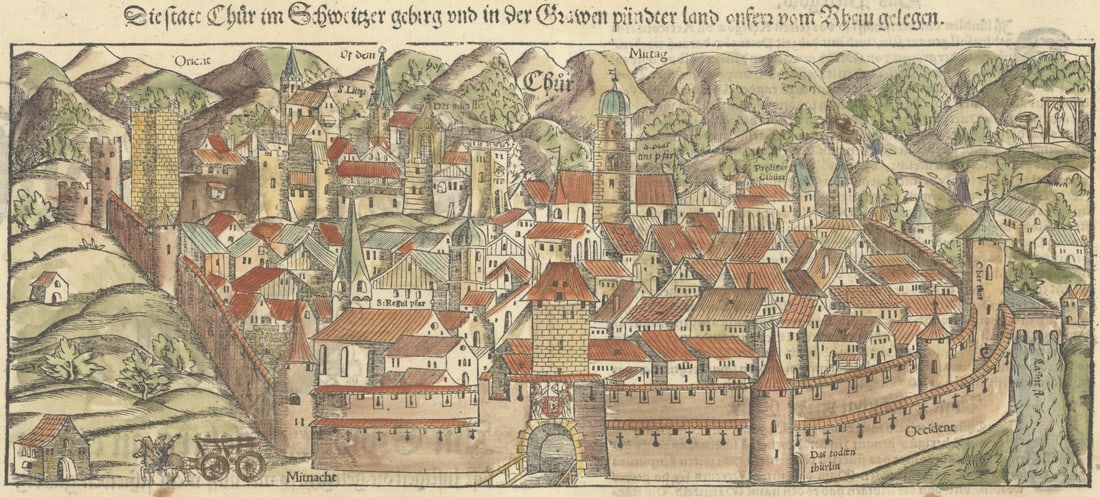 Die statt Chůr im Schweitzer gebirg vnd in der Grawen pündter land onferr vom Rhein gelegen.
Orient
Of dem
hor
Mittag
S Lucy
Das münster
Chůr
S. Mar
tins pfar
Prediger
Closter
S. Regul pfar
Occident
Das todten
thürlin
Mitnacht